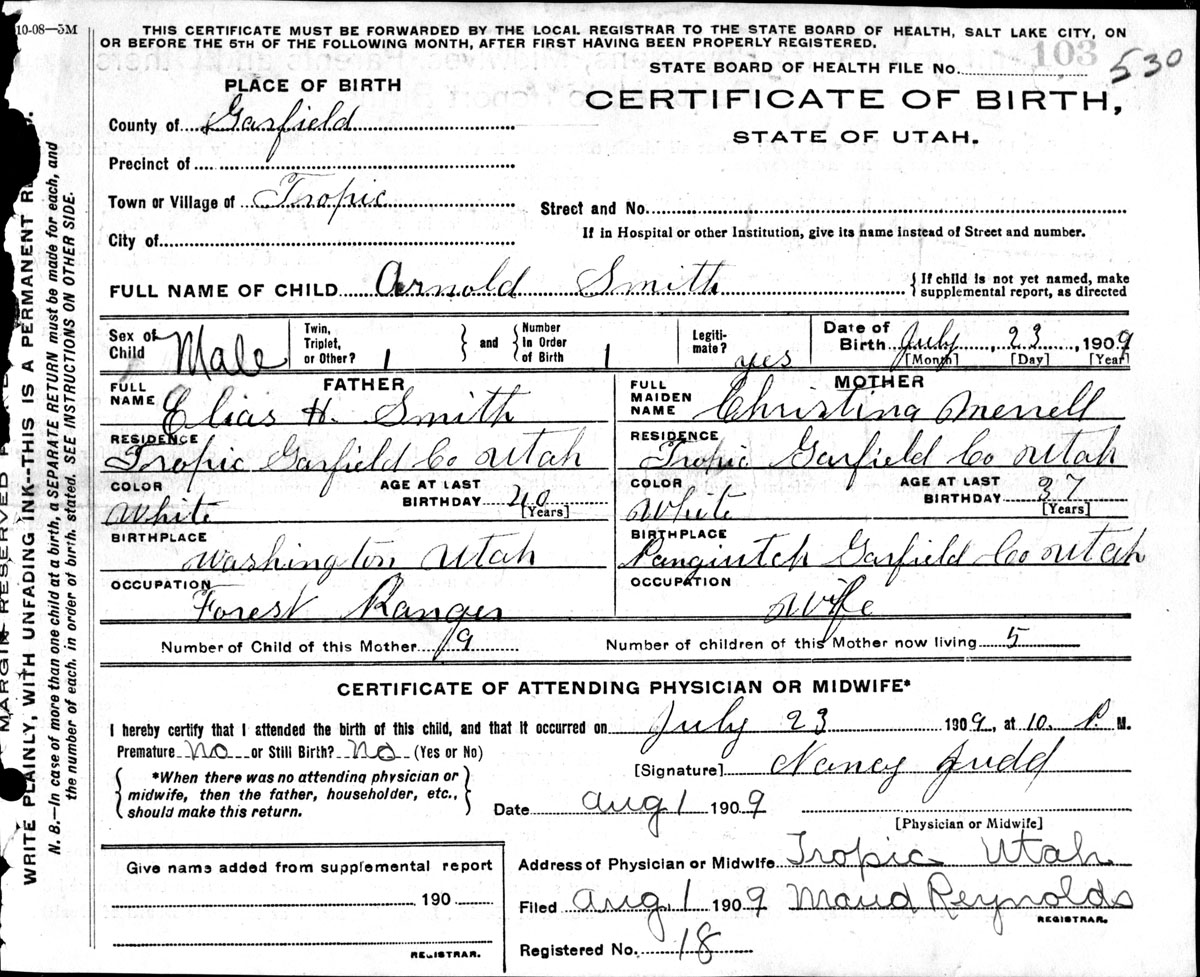 10-08—3M
THIS CERTIFICATE MUST BE FORWARDED BY THE LOCAL REGISTRAR TO THE STATE BOARD OF HEALTH, SALT LAKE CITY, ON
OR BEFORE THE 5TH OF THE FOLLOWING MONTH, AFTER FIRST HAVING BEEN PROPERLY REGISTERED.
STATE BOARD OF HEALTH FILE No. 103 530
PLACE OF BIRTH
CERTIFICATE OF BIRTH,
STATE OF UTAH.
County of Garfield
Precinct of
Town or Village of Tropic
Street and No.
City of
If in Hospital or other Institution, give its name instead of Street and number.
FULL NAME OF CHILD Arnold Smith
{ If child is not yet named, make
supplemental report, as directed
Sex of Child Male
Twin, Triplet, or Other? 1 } and { Number In Order of Birth 1
Legiti-mate? yes
Date of Birth July, 23, 1909
[Month] [Day] [Year]
FATHER
FULL NAME Elias H. Smith
RESIDENCE Tropic Garfield Co Utah
COLOR White
AGE AT LAST BIRTHDAY 40 [Years]
BIRTHPLACE Washington Utah
OCCUPATION Forest Ranger
MOTHER
FULL MAIDEN NAME Christina Merrell
RESIDENCE Tropic Garfield Co Utah
COLOR White
AGE AT LAST BIRTHDAY 37 [Years]
BIRTHPLACE Panguitch Garfield Co Utah
OCCUPATION Wife
Number of Child of this Mother 9
Number of children of this Mother now living 5
CERTIFICATE OF ATTENDING PHYSICIAN OR MIDWIFE*
I hereby certify that I attended the birth of this child, and that it occurred on July 23 1909, at 10. P. M.
Premature No or Still Birth? No (Yes or No)
{ *When there was no attending physician or
midwife, then the father, householder, etc.,
should make this return. }
[Signature] Nancy Judd
Date Aug 1 1909
[Physician or Midwife]
Give name added from supplemental report
190
REGISTRAR.
Address of Physician or Midwife Tropic Utah
Filed Aug 1 1909 Maud Reynolds
REGISTRAR.
Registered No. 18
MARGIN RESERVED
WRITE PLAINLY, WITH UNFADING INK--THIS IS A PERMANENT
N. B.—In case of more than one child at a birth, a SEPARATE RETURN must be made for each, and
the number of each, in order of birth, stated. SEE INSTRUCTIONS ON OTHER SIDE.